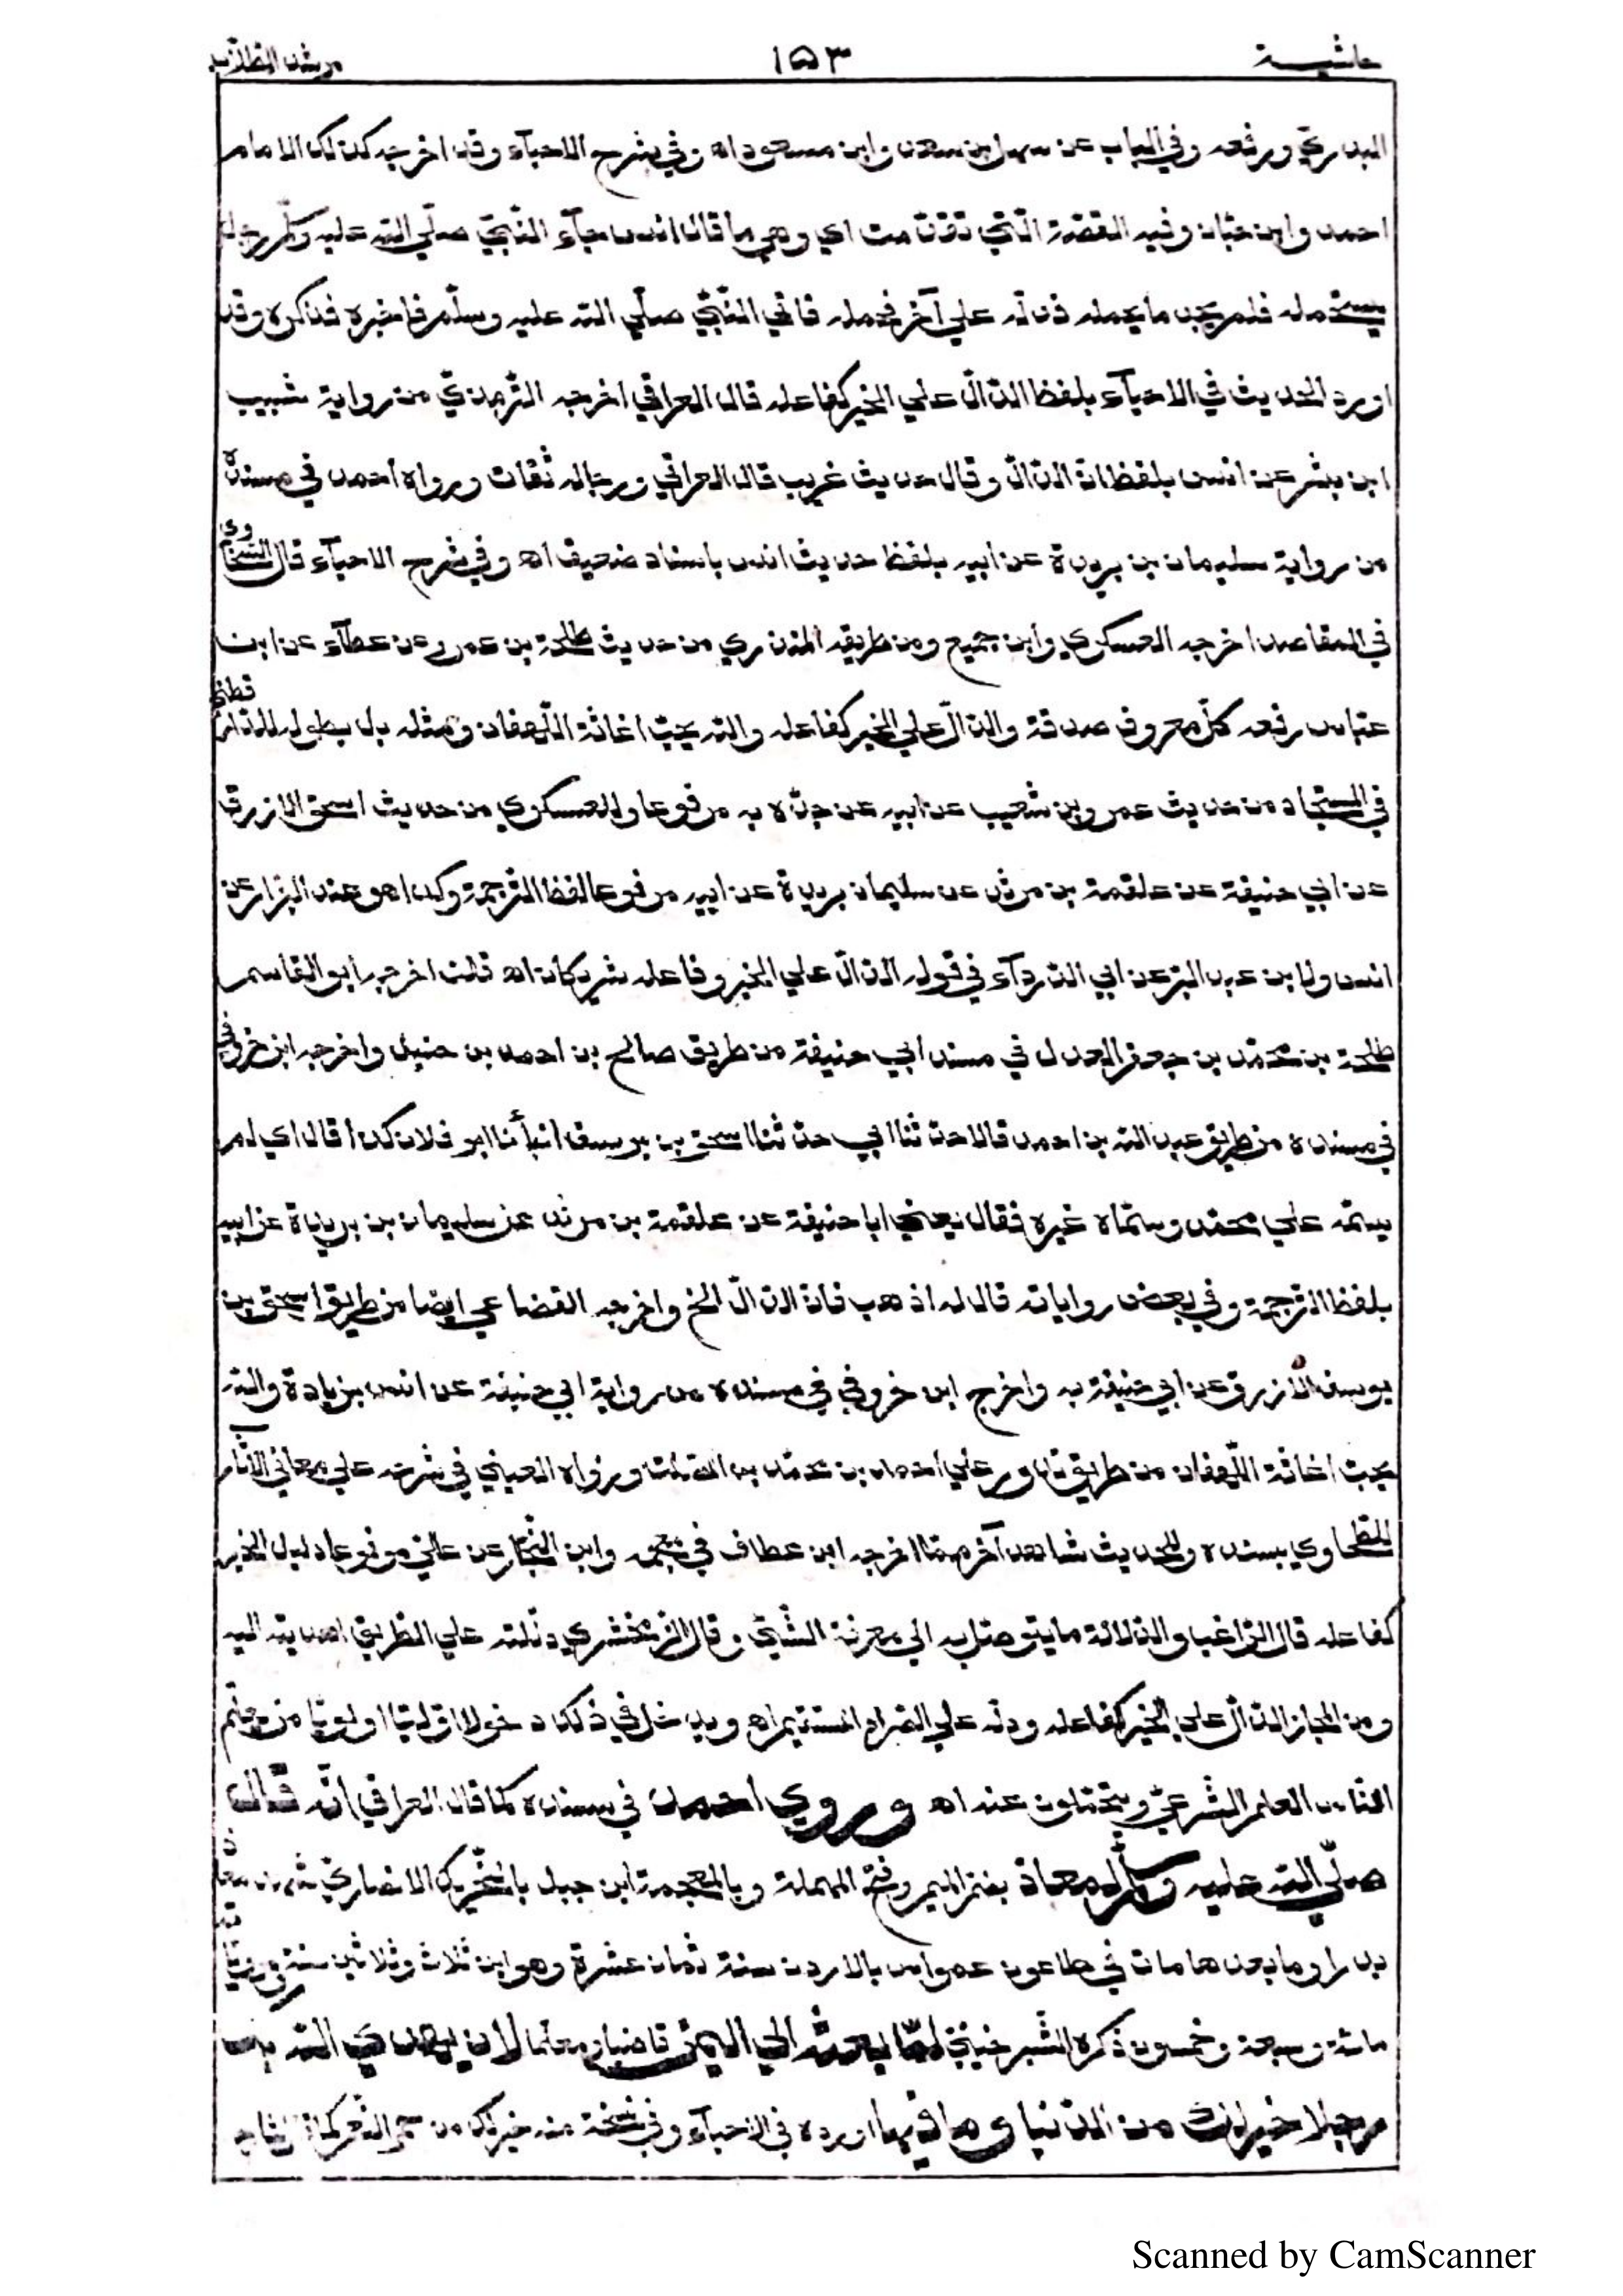 حاشية ١٥٣ مرشد الطلاب
البدري ورفعه وفي الباب عن سهل بن سعد وابن مسعود اه وفي شرح الاحيآء وقد اخرجه كذلك الامام
احمد وابن حبّان وفيه القصّة الّتي تقدّمت اي وهي ما قال انس جآء النّبيّ صلّي الله عليه وسلّم رجل
يستحمله فلم يجد ما يحمله فدلّه علي آخر فحمله فاتي النّبيّ صلّي الله عليه وسلّم فاخبره فذكره وقد
اورد الحديث في الاحيآء بلفظ الدّالّ علي الخير كفاعله قال العراقي اخرجه التّرمذيّ من رواية شبيب
ابن بشر عن انس بلفظ انّ الدّالّ وقال حديث غريب قال العراقي ورجاله ثقات ورواه أحمد في مسنده
من رواية سليمان بن بريدة عن أبيه بلفظ حديث انس باسناد ضعيف اه وفي شرح الاحيآء قال السّخاوي
في المقاصد اخرجه العسكري وابن جميع ومن طريقه المنذري من حديث طلحة بن عمرو عن عطآء عن ابن
عبّاس رفعه كلّ معروف صدقة والدّالّ علي الخير كفاعله والله يحبّ اغاثة اللّهفان ومثله بل بطوله للدّارقطني
في المستجاد من حديث عمرو بن شعيب عن أبيه عن جدّه به مرفوعا وللعسكري من حديث اسحق الازرق
عن ابي حنيفة عن علقمة بن مرثد عن سليمان بريدة عن ابيه مرفوعا لفظ التّرجمة وكذا هو عند البزار عن
انس ولابن عبد البرّ عن ابي الدّردآء في قوله الدّالّ علي الخير وفاعله شريكان اه قلت اخرجه أبو القاسم
طلحة بن محمّد بن جعفر المعدل في مسند ابي حنيفة من طريق صالح بن احمد بن حنبل واخرجه ابن خروفي
في مسنده من طريق عبد الله بن احمد قالا حدّثنا ابي حدّثنا اسحق بن يوسف أنبأنا ابو فلان كذا قال اي لم
يسمّه علي محمّد وسمّاه غيره فقال يعني ابا حنيفة عن علقمة بن مرثد عن سليمان بن بريدة عن ابيه
بلفظ التّرجمة وفي بعض رواياته قال له اذهب فانّ الدّالّ الخ واخرجه القضاعي ايضا من طريق اسحق بن
يوسف الأزرق عن ابي حنيفة به واخرج ابن خروفي في مسنده من رواية ابي حنيفة عن انس بزيادة والله
يحبّ اغاثة اللّهفان من طريق احمد بن محمّد بن ورواه العيني في شرحه علي معاني الآثار
للطّحاوي بسنده وللحديث شاهد آخر ممّا اخرجه ابن عطاف في معجمه وابن النّجّار عن عليّ مرفوعا دليل الخير
كفاعله قال الرّاغب والدّلالة ما يتوصّل به الي معرفة الشّيئ وقال الزّمخشري دللته علي الطّريق اهديته اليه
ومن المجاز الدّالّ علي الخير كفاعله ودلّه علي الصّراط المستقيم اه ويدخل في ذلك دخولا اوّليّا اولويّا من يعلّم
النّاس العلم الشّرعيّ ويتحمّلون عنه اه وروي احمد في مسنده كما قال العراقي انّه قال
صلّي الله عليه وسلّم لمعاذ بضمّ الميم وفتح المهملة وبالمعجمة ابن جبل بالتّحريك الانصاريّ شهد معاذ
بدرا وما بعدها مات في طاعون عمواس بالاردن سنة ثمان عشرة وهو ابن ثلاث وثلاثين سنة
مائة وسبعة وخمسون ذكره الشّبرخيتيّ لمّا بعثه الي اليمن قاضيا ومعلّما لأن يهدي الله بك
رجلا خير لك من الدّنيا وما فيها اورده في الاحيآء وفي نسخة منه خير لك من حمر النّعم كما
Scanned by CamScanner